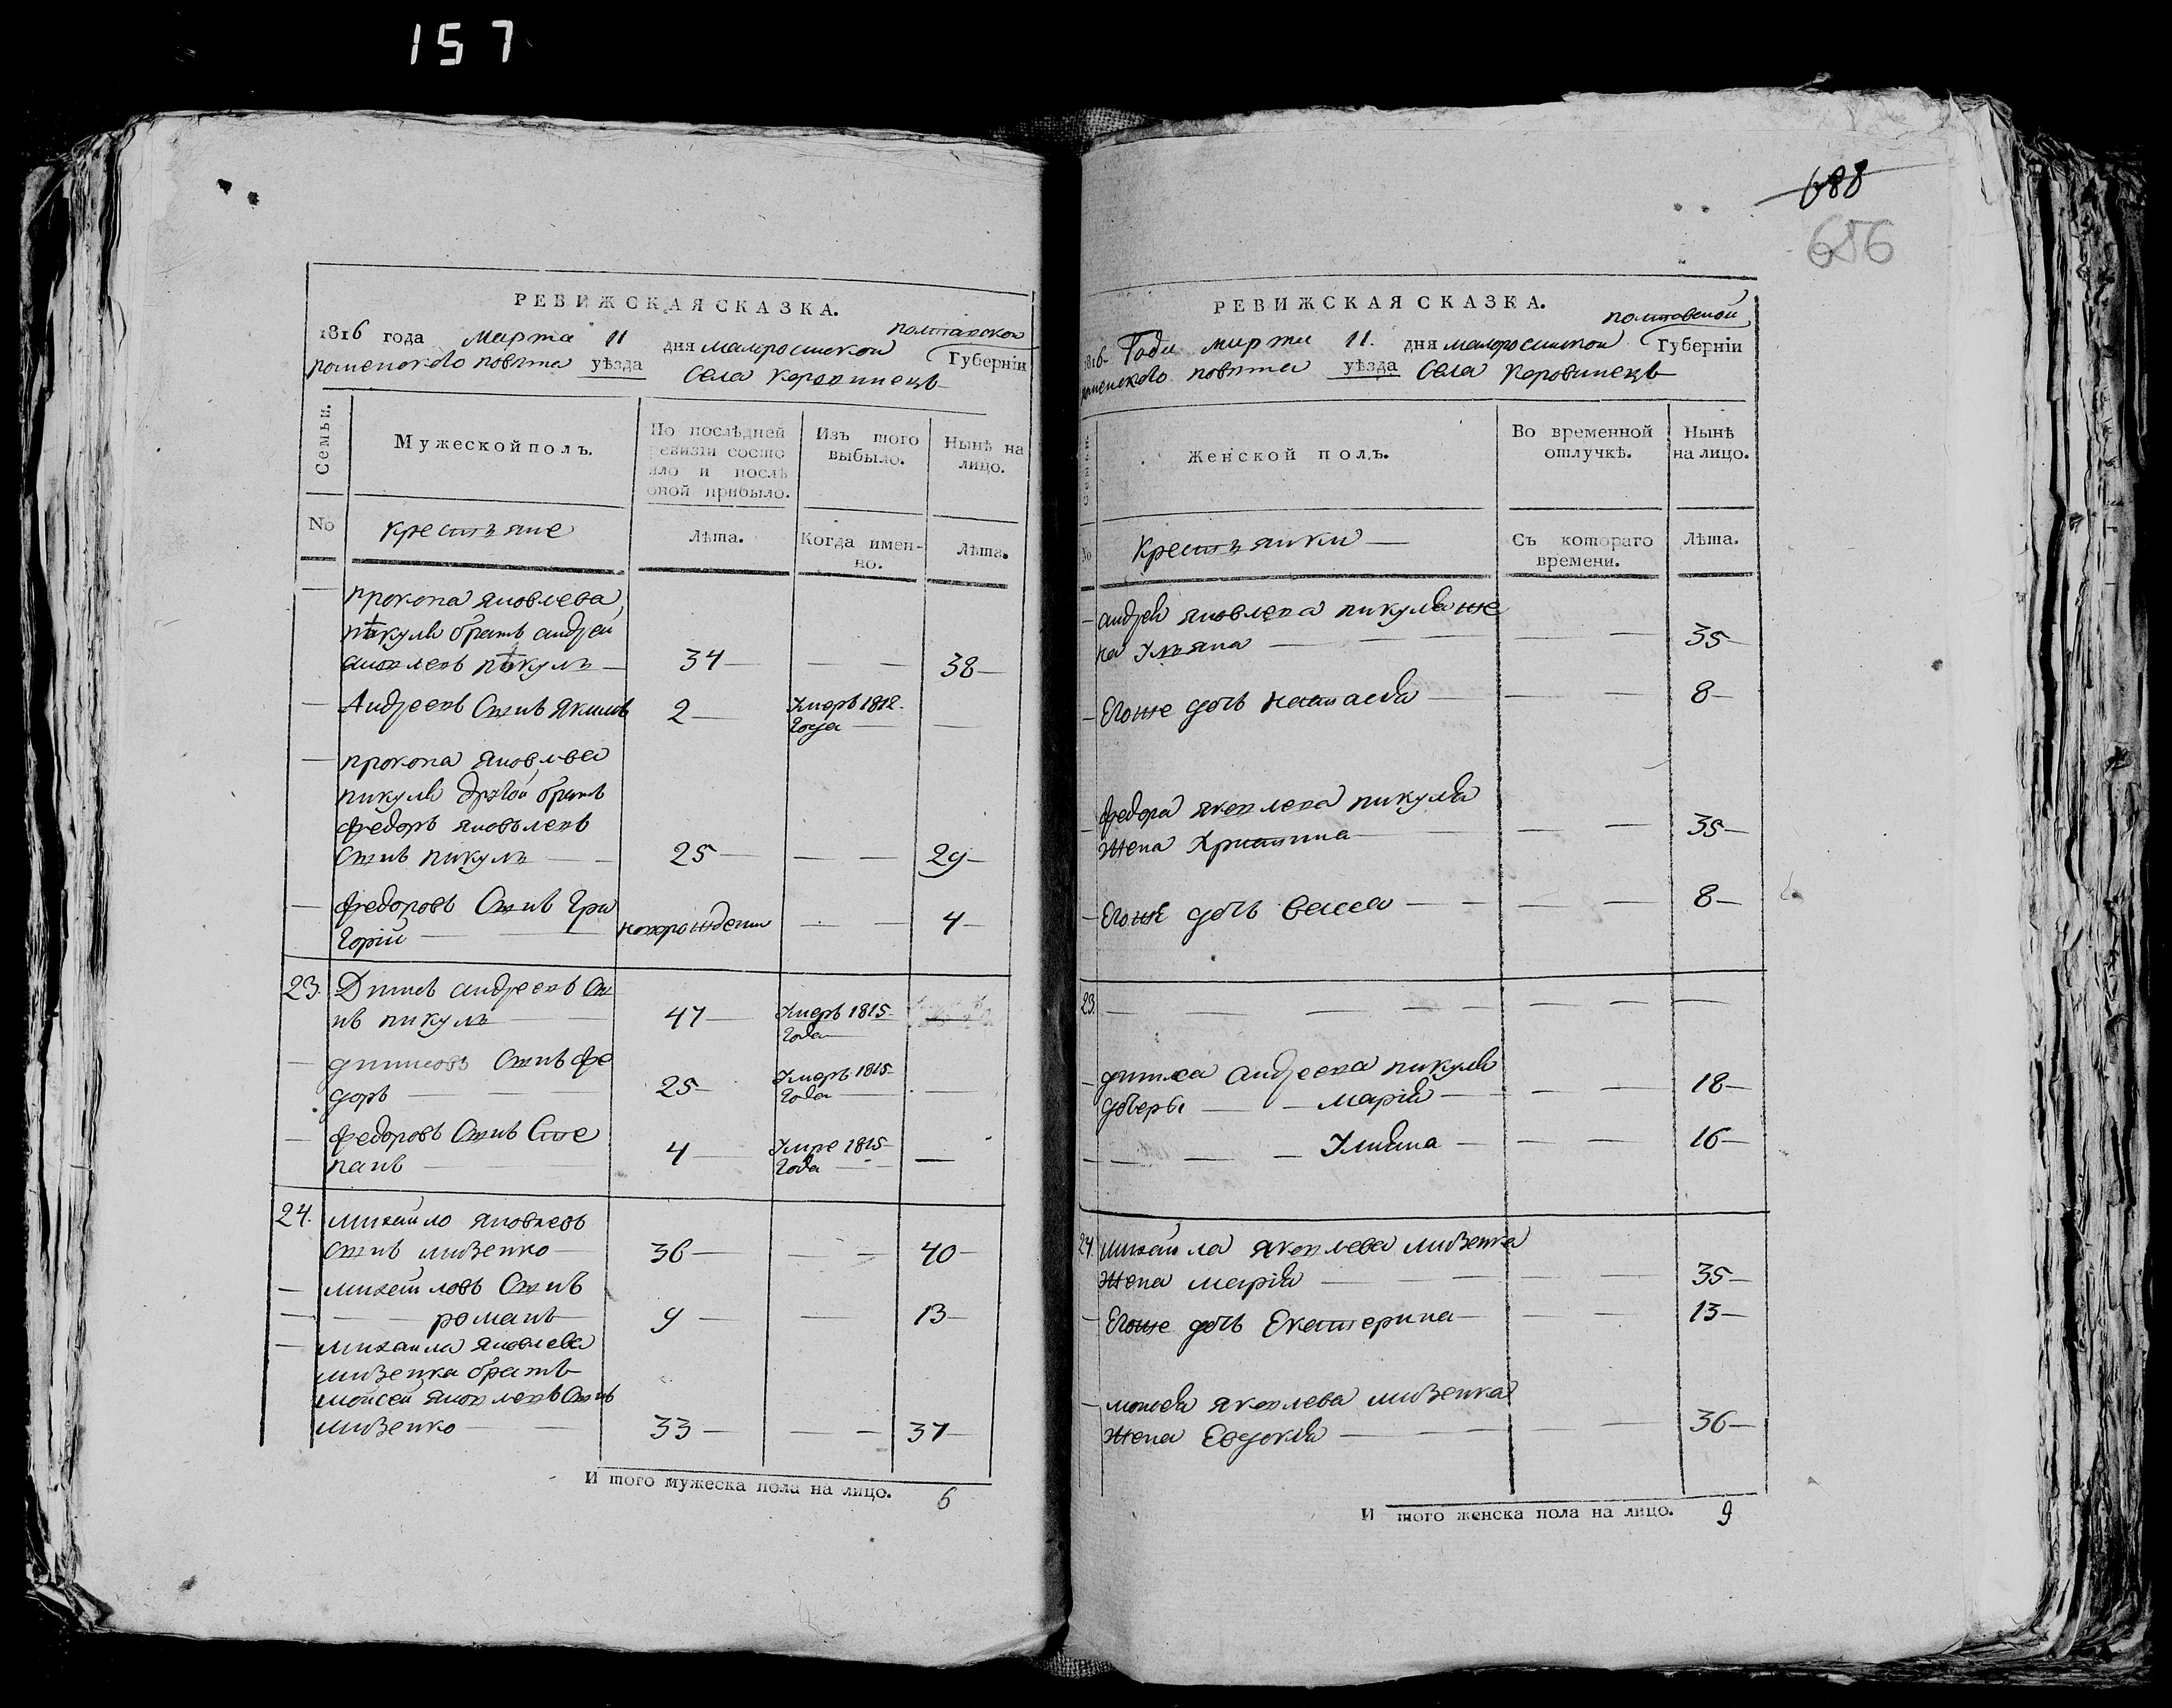 157
688
656
РЕВИЖСКАЯ СКАЗКА.
1816 года Марта 11 дня малоросийской полтавской Губернїи
роменского повѣта уѣзда Села Коровинець
Семьи.
Мужеской полъ.
По послѣдней ревизїи состояло и послѣ оной прибыло.
Изъ того выбыло.
Нынѣ на лицо.
No
крестьяне
Лѣта.
Когда именно.
Лѣта.
— прокопа яковлева
пикуля братъ андрей
яковлевъ пикуль — 34 — — — 38 —
— Андреевъ Сынъ Якимъ 2 — Умеръ 1812.
Года — —
— прокопа яковлева
пикуля другой братъ
федоръ яковлевъ
Сынъ пикуль — 25 — — — 29 —
— федоровъ Сынъ Гри
горїй — новорожденъ — — 4 —
23. андреевъ Сы
нъ пикуль — 47 — Умеръ 1815
Года —
— Сынъ фе
доръ — 25 — Умеръ 1815
Года — —
— федоровъ Сынъ Сте
панъ — 4 — Умре 1815
Года — —
24. михайло яковлевъ
Сынъ мизенко — 36 — — — 40 —
— михайловъ Сынъ
— — романъ 9 — — 13 —
— михаила яковлева
мизенка братъ
мойсей яковлевъ Сынъ
мизенко — 33 — — — 37 —
И того мужеска пола на лицо. 6
РЕВИЖСКАЯ СКАЗКА.
1816 Года марта 11. дня малоросийской полтавской Губернїи
роменского повѣта уѣзда Села Коровинець
Семьи.
Женской полъ.
Во временной отлучкѣ.
Нынѣ на лицо.
No
крестьянки —
Съ котораго времени.
Лѣта.
— андрея яковлева пикуля же
на Ульяна — — — 35 —
— Егоже дочь настасія — — — 8 —
— федора яковлева пикуля
жена Христина — — — 35 —
— Егоже дочь васса — — — 8 —
23. — — — — — —
— андреева пикуля
дочеры — — марія — — — 18 —
— — — Улияна — — — 16 —
24. михайла яковлева мизенка
жена марія — — — 35 —
— Егоже дочь Екатерина — — — 13 —
— мойсея яковлева мизенка
жена Евдокія — — — 36 —
И того женска пола на лицо. 9